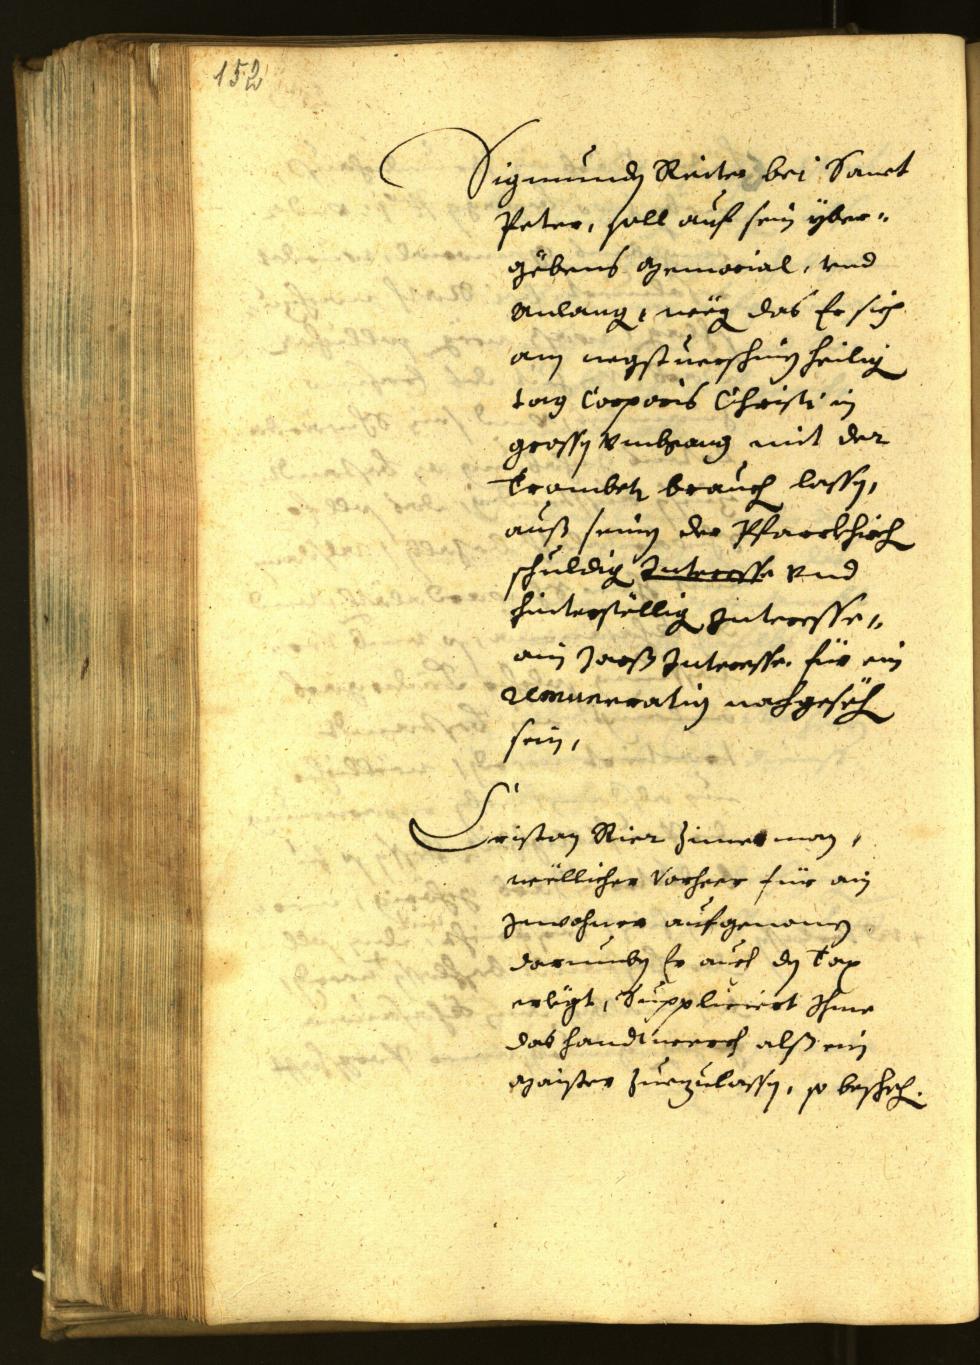 152
Sigmunden Reiter bei Sanct
Peter, soll auf sein yber-
gebens Memorial, vnd
Anlang, weg das Er sich
am negst verschinen heilig
tag Corporis Christi in
grossen Vmbgang mit der
Trombeten brauch lassen,
auß seinen der Pfarrkhirch
schuldig Interesse vnd
hinterstellig Interesse,
ain Jarß Interesse für ein
remuneration nachgesech
sein,
Cristan Rier Zimerman,
wellicher vorheer für ain
Inwohner aufgenomen
darumben Er auch den Tax
erlegt, Suppliciert Ihme
das handtwerch alß ein
Maister zuezulassen, so beschech.